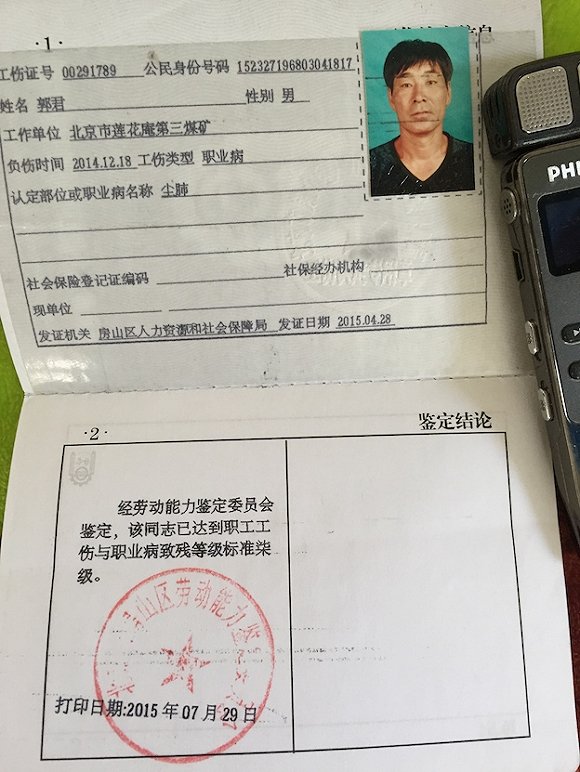 ·1·
工伤证号 00291789 公民身份号码 152327196803041817
姓名 郭君 性别 男
工作单位 北京市莲花庵第三煤矿
负伤时间 2014.12.18 工伤类型 职业病
认定部位或职业病名称 尘肺
社会保险登记证编码 社保经办机构
现单位
发证机关 房山区人力资源和社会保障局 发证日期 2015.04.28
PHI
·2· 鉴定结论
经劳动能力鉴定委员会
鉴定，该同志已达到职工工
伤与职业病致残等级标准柒
级。
山区劳动能力鉴
打印日期:2015 年 07 月 29 日